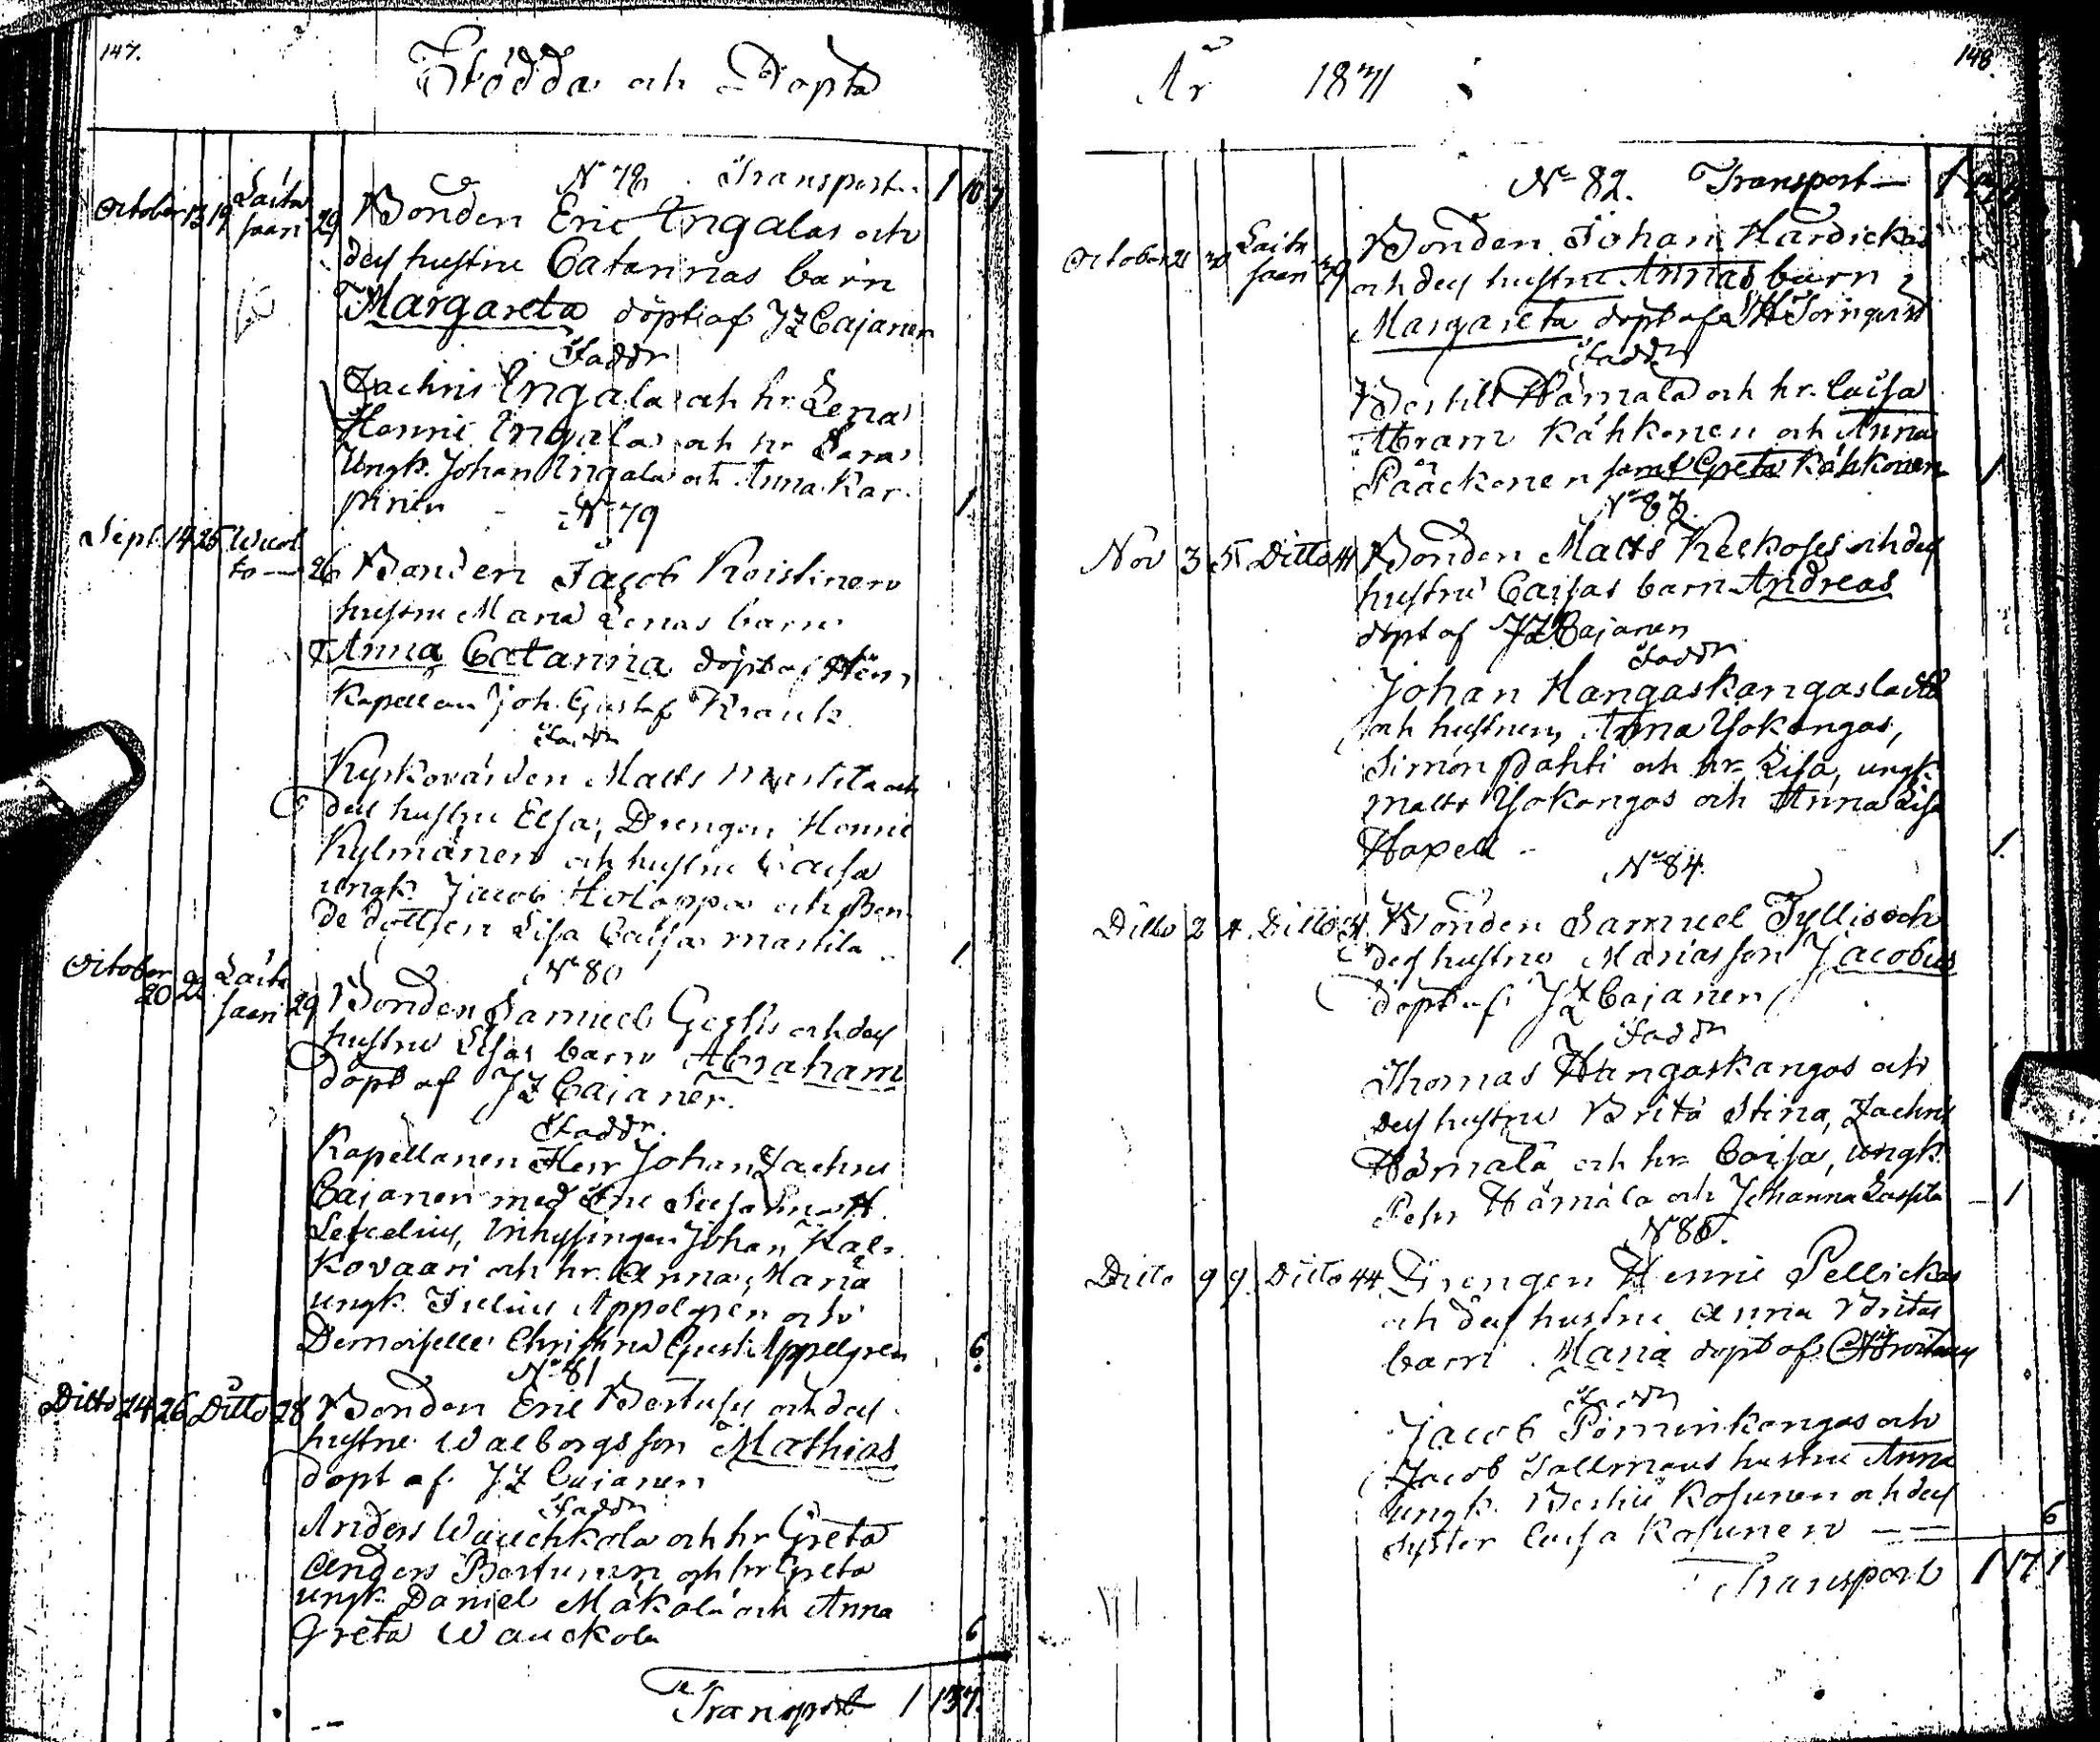 147.
Födda och Döpta
N° 78 Transport 1 10 7
October 13 19 Laitasaari 29 Bonden Eric Ingalas och
dess hustru Catarinas barn
Margareta döpt af J Z Cajanen
Faddr
Zachris Ingala och hr Lena
Henric Ingala och hr Sara
Ungk. Johan Ingala och Anna Kar-
pinen 1
N° 79
Sept. 14 25 Wuolto 26 Bonden Jacob Koistinens
hustru Maria Lenas barn
Anna Catarina döpt af Herr
Kapellan Joh. Gustaf
Faddr
Kyrkovärden Matts Martila och
dess hustru Elsa, Drengen Henric
Kylmänen och hustru Caisa
ungk. Jacob Holappa och Bon-
de dottren Lisa Caisa Martila 1
N° 80
October 20 22 Laitasaari 29 Bonden Samuel och dess
hustru Elsas barn Abraham
döpt af J Z Cajanen.
Faddr.
Kapellanen Herr Johan Zachris
Cajanen med Fru
Inhysingen Johan Kal-
kovaari och hr. Anna Maria
ungk. Julius Appelgren och
Demoiselle Christina Gust. Appelgren 6
N° 81
Ditto 24 26 Ditto 28 Bonden Eric Bertuses och dess
hustru Walborgs son Mathias
döpt af J Z Cajanen
Faddr
Anders Wauchkola och hr Greta
Anders Bertunen och hr Greta
ungk. Daniel Mäkälä och Anna
Greta Wauckola 6
Transport 1 13 7.
148.
År 1831
N° 82. Transport — 1 13 7
October 21 30 Laitasaari 39 Bonden Johan Hardickas
och dess hustru Annas barn
Margareta döpt af H Törnqvist
Faddr
Bertill Hämälä och hr. Caisa
Abram Kähkönen och Anna
Pääckönen samt Greta Kähkönen 1
N° 83.
Nov 3 5 Ditto 41 Bonden Matts Keckoses och dess
hustru Caisas barn Andreas
döpt af J Z Cajanen
Faddr
Johan Hangaskangaslachti
och hustrun Anna Yokangas,
Simon Pahti och hr Lisa, ungk.
Matts Yokangas och Anna Lisa
Hapell 1.
N° 84.
Ditto 2 4 Ditto 31 Bonden Samuel Tyllis och
dess hustru Marias son Jacobus
döpt af J Z Cajanen
Faddr
Thomas Hangaskangas och
dess hustru Brita Stina, Zachris
Hämälä och hr Caisa, ungk.
Pehr Hämälä och Johanna 1
N 85.
Ditto 9 9 Ditto 44 Drengen Henric Pellickas
och dess hustru Anna Britas
barn Maria döpt af
Faddr
Jacob Pöminkangas och
Jacob Sallmans hustru Anna
ungk. Bertil Kosunen och dess
syster Caisa Kosunen — — 6
Transport 1 17 1